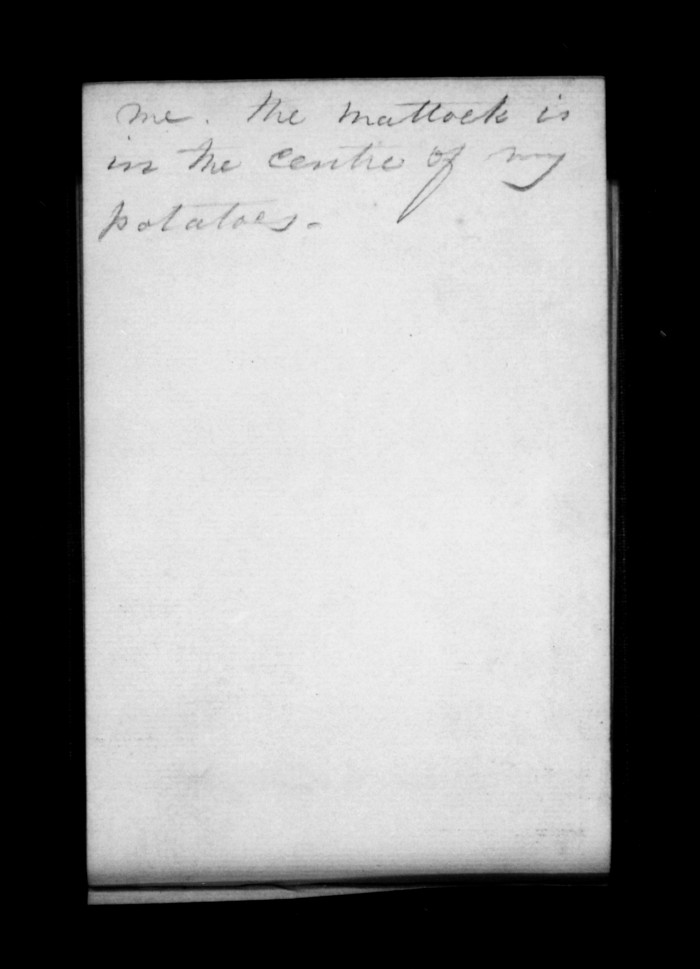 me. the mattock is
in the centre of my
potatoes.-